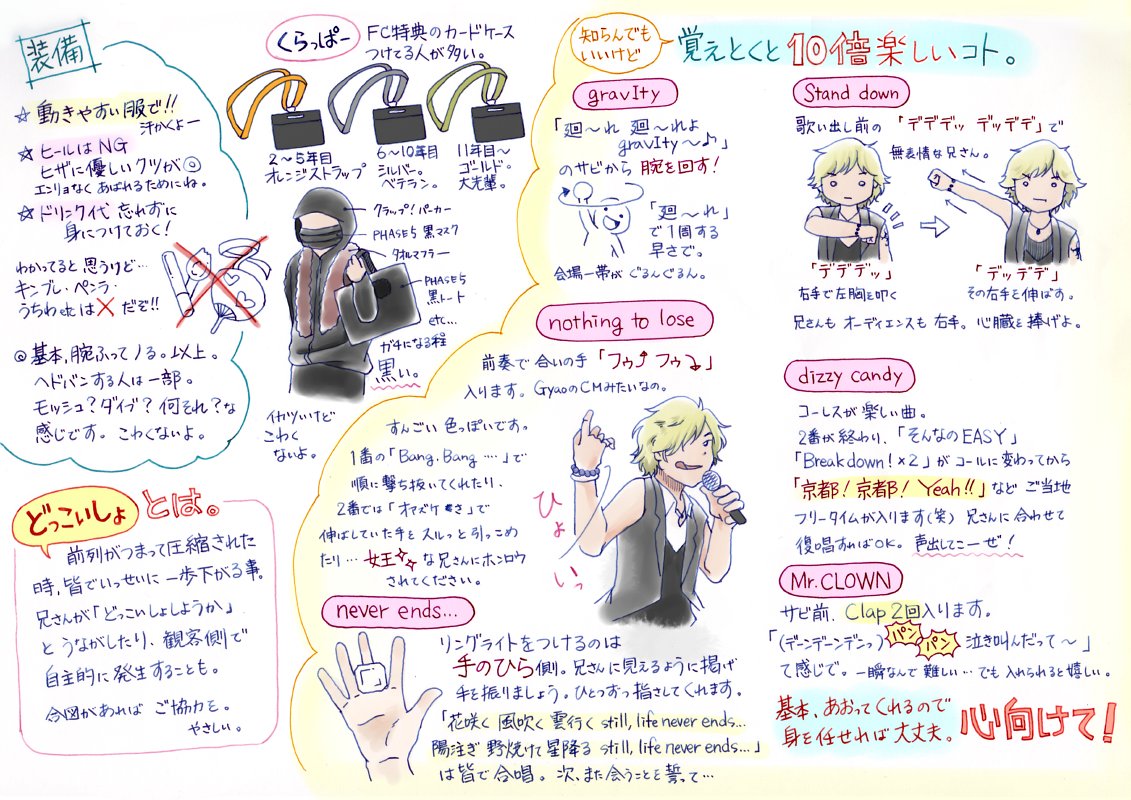 装備
☆動きやすい服で!!
汗かくよー
☆ヒールはNG
ヒザに優しいクツが◎
エンリョなくあばれるためにね。
☆ドリンク代 忘れずに
身につけておく!
わかってると思うけど…
キンブレ・ペンラ・
うちわetcは×だぞ!!
◎基本、腕ふってノる。以上。
ヘドバンする人は一部。
モッシュ?ダイブ?何それ?な
感じです。こわくないよ。
くらっぱー
FC特典のカードケース
つけてる人が多い。
2〜5年目
オレンジストラップ
6〜10年目
シルバー。
ベテラン。
11年目〜
ゴールド。
大先輩。
クラップ!パーカー
PHASE5 黒マスク
タオルマフラー
PHASE5
黒トート
etc…
ガチになる程
黒い。
イカツいけど
こわく
ないよ。
どっこいしょとは。
前列がつまって圧縮された
時、皆でいっせいに一歩下がる事。
兄さんが「どっこいしょしようか」
とうながしたり、観客側で
自主的に発生することも。
合図があればご協力を。
やさしい。
知らんでも
いいけど
覚えとくと10倍楽しいコト。
gravIty
「廻〜れ 廻〜れよ
gravIty〜♪」
のサビから 腕を回す!
「廻〜れ」
で1周する
早さで。
会場一帯がぐるんぐるん。
nothing to lose
前奏で合いの手「フゥ⤴フゥ⤵」
入ります。GyaoのCMみたいなの。
すんごい色っぽいです。
1番の「Bang.Bang…」で
順に撃ち抜いてくれたり、
2番では「オアズケ」で
伸ばしていた手をスルッと引っこめ
たり…女王な兄さんにホンロウ
されてください。
ひょいっ
never ends...
リングライトをつけるのは
手のひら側。兄さんに見えるように掲げ
手を振りましょう。ひとつずつ指さしてくれます。
「花咲く 風吹く 雲行く still, life never ends...
陽注ぎ 野焼けて 星降る still, life never ends...」
は皆で合唱。次、また会うことを誓って…
Stand down
歌い出し前の「デデデッ デッデデ」で
無表情な兄さん。
「デデデッ」
右手で左胸を叩く
「デッデデ」
その右手を伸ばす。
兄さんもオーディエンスも右手。心臓を捧げよ。
dizzy candy
コーレスが楽しい曲。
2番が終わり、「そんなのEASY」
「Breakdown!×2」がコールに変わってから
「京都!京都!Yeah!!」など ご当地
フリータイムが入ります(笑) 兄さんに合わせて
復唱すればOK。声出してこーぜ!
Mr.CLOWN
サビ前、Clap2回入ります。
「(デーンデーンデンッ)パンパン 泣き叫んだって〜」
て感じで。一瞬なんで難しい…でも入れられると嬉しい。
基本、あおってくれるので
身を任せれば大丈夫。
心向けて!